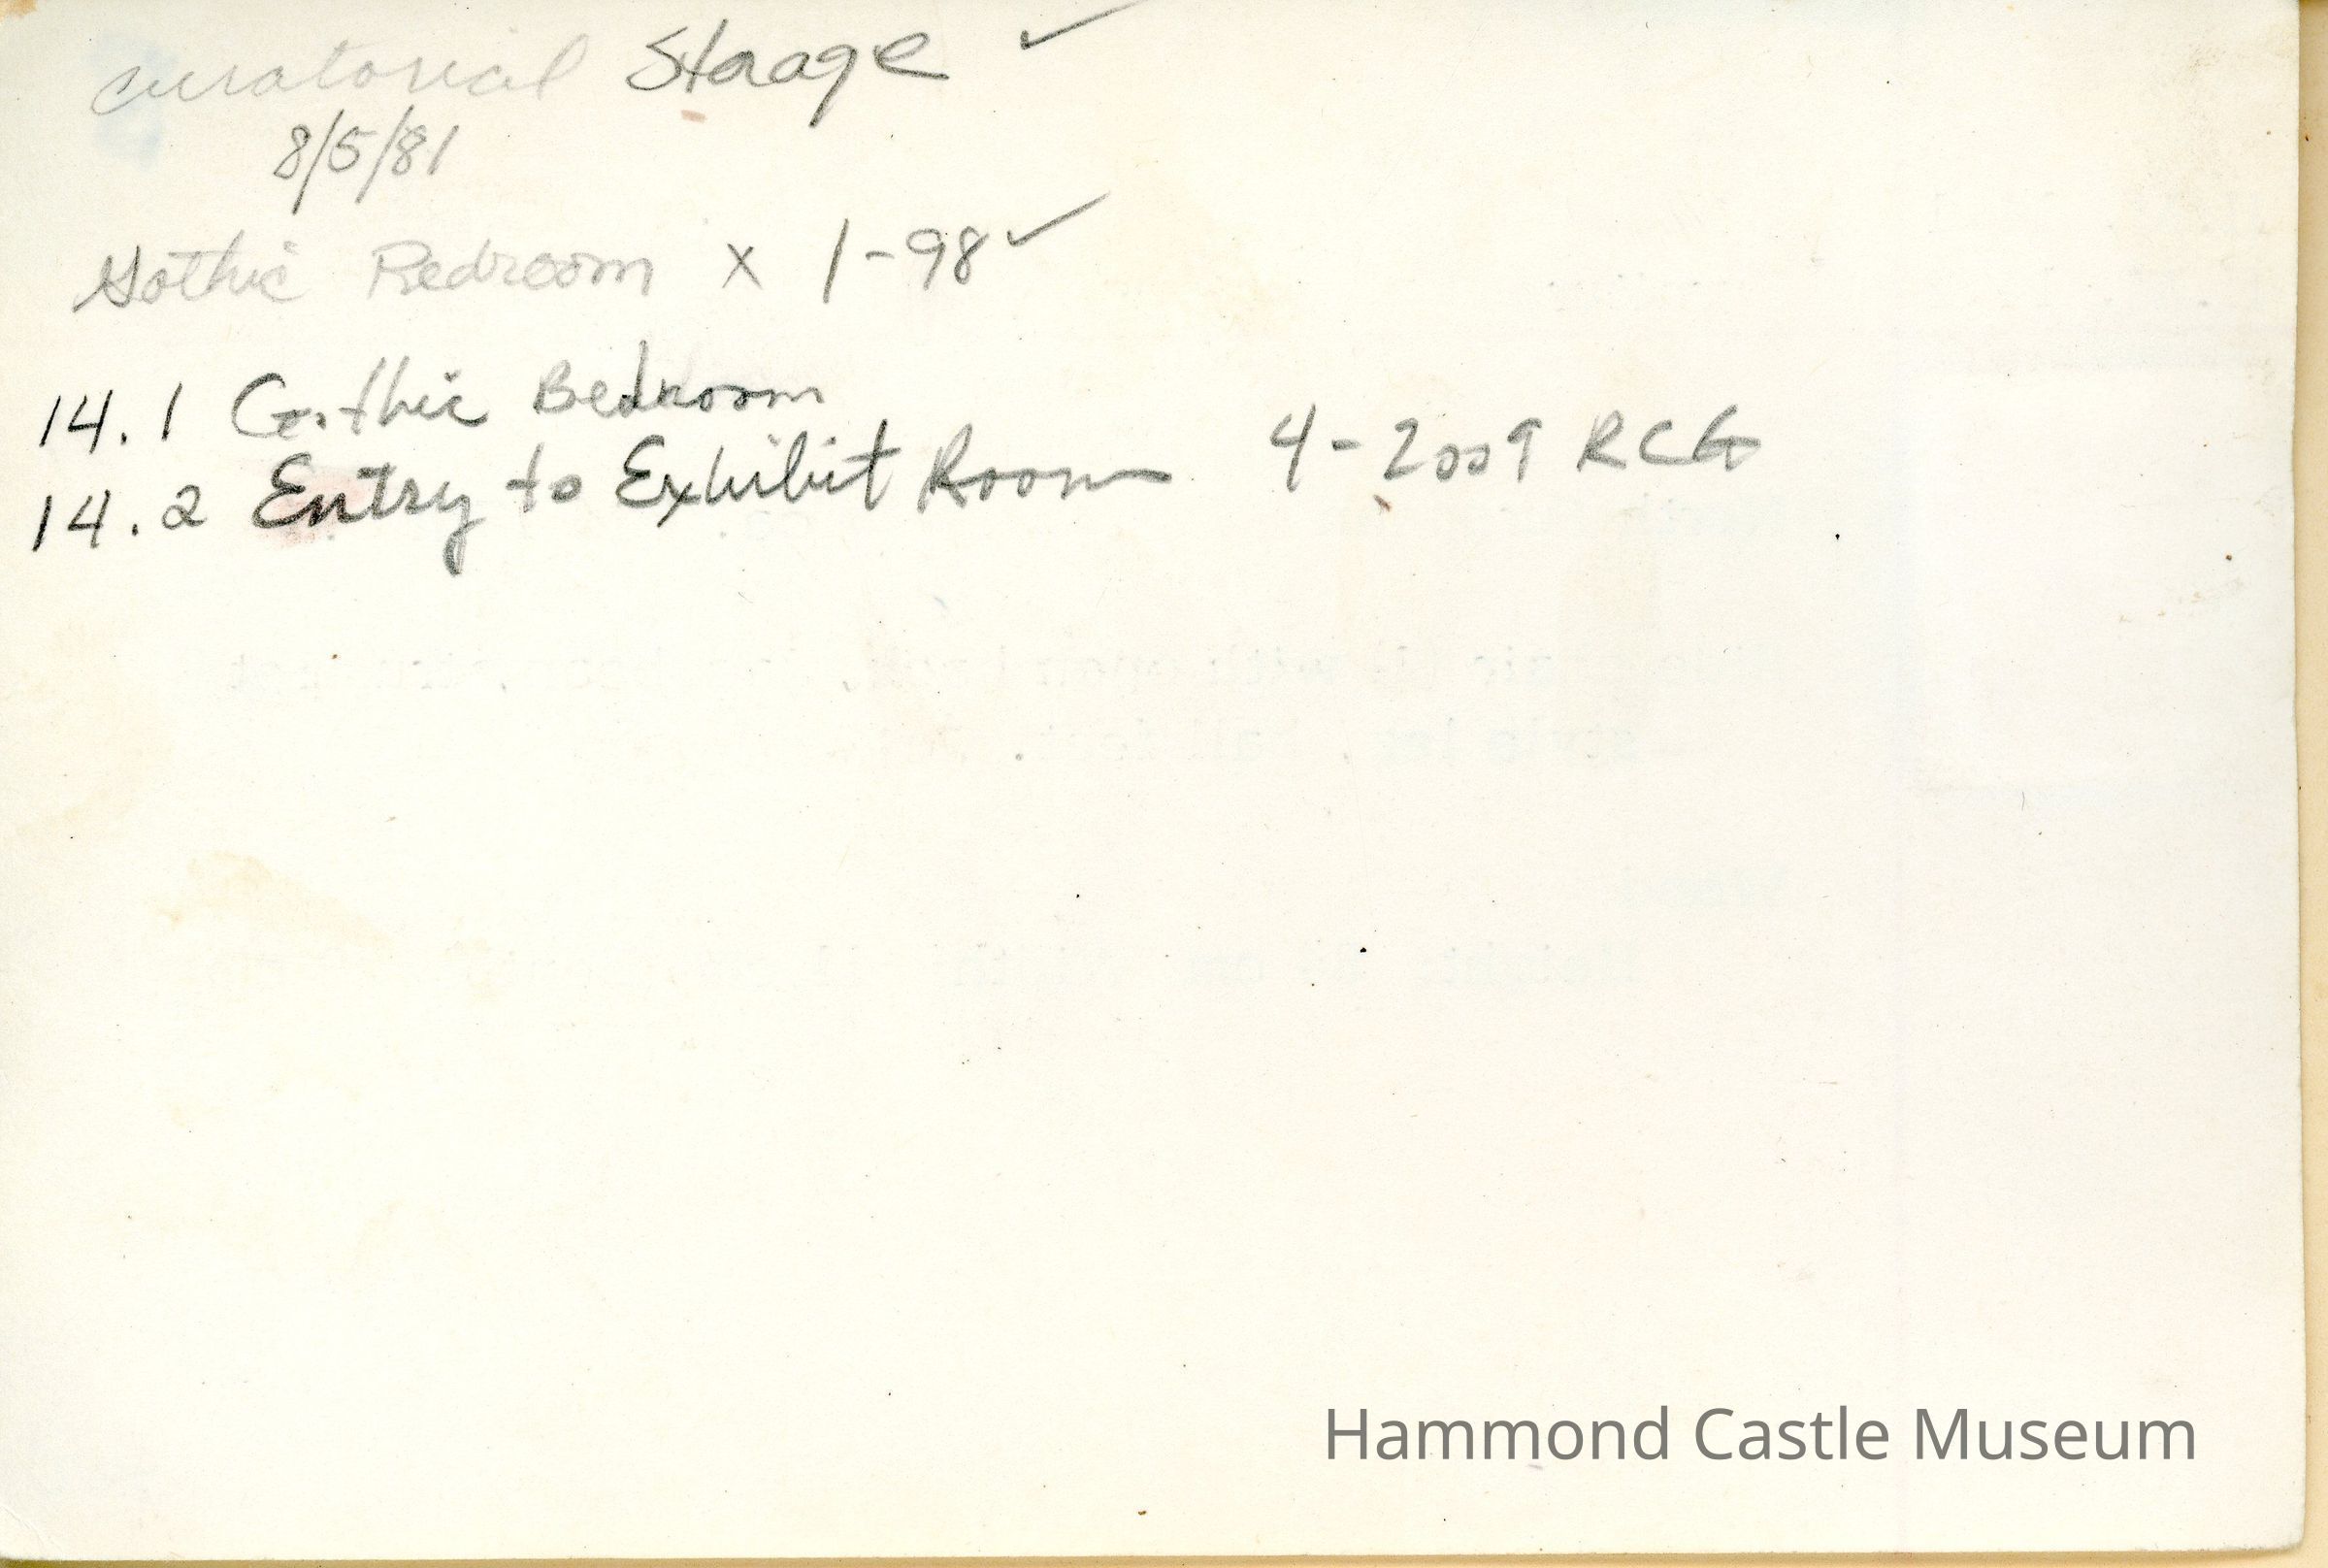 curatorial Staage ✓
8/5/81
Gothic Bedroom x 1-98 ✓
14.1 Gothic Bedroom
14.2 Entry to Exhibit Room 4-2009 RCG
Hammond Castle Museum